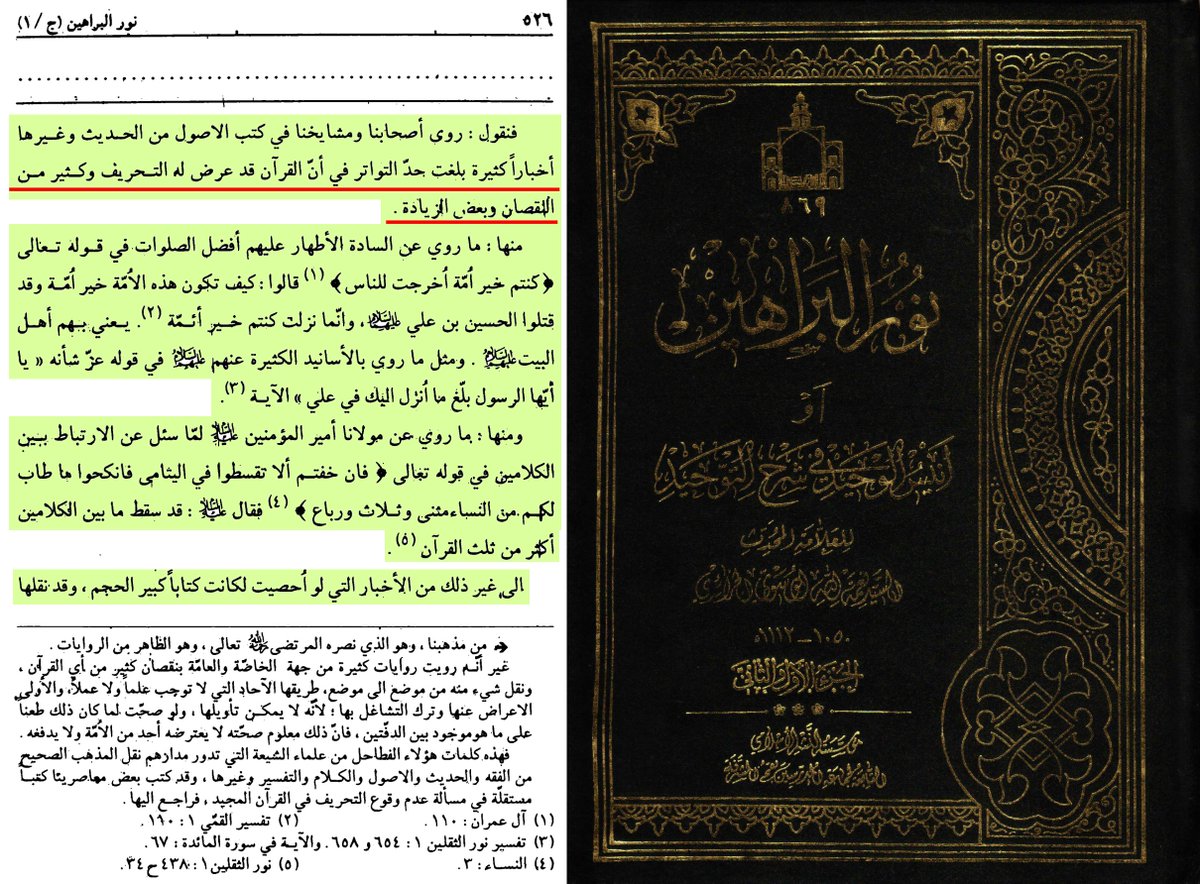 ٥٢٦
نور البراهين (ج / ١)
فنقول : روى أصحابنا ومشايخنا في كتب الاصول من الحديث وغيرها
أخباراً كثيرة بلغت حدّ التواتر في أنّ القرآن قد عرض له التحريف وكثير من
النقصان وبعض الزيادة .
منها : ما روي عن السادة الأطهار عليهم أفضل الصلوات في قوله تعالى
﴿كنتم خير اُمّة اُخرجت للناس﴾ (١) قالوا : كيف تكون هذه الاُمّة خير اُمّة وقد
قتلوا الحسين بن علي عليهما السلام ، وانّما نزلت كنتم خير أئمّة (٢). يعني بهم أهل
البيت عليهم السلام . ومثل ما روي بالأسانيد الكثيرة عنهم عليهم السلام في قوله عزّ شأنه « يا
أيّها الرسول بلّغ ما اُنزل اليك في علي » الآية (٣).
ومنها : ما روي عن مولانا أمير المؤمنين عليه السلام لمّا سئل عن الارتباط بين
الكلامين في قوله تعالى ﴿ فان خفتم ألا تقسطوا في اليتامى فانكحوا ما طاب
لكم من النساء مثنى وثلاث ورباع ﴾ (٤) فقال عليه السلام : قد سقط ما بين الكلامين
أكثر من ثلث القرآن (٥).
الى غير ذلك من الأخبار التي لو اُحصيت لكانت كتاباً كبير الحجم ، وقد نقلها
من مذهبنا ، وهو الذي نصره المرتضى رحمه الله تعالى ، وهو الظاهر من الروايات .
غير أنّه رويت روايات كثيرة من جهة الخاصّة والعامّة بنقصان كثير من آي القرآن ،
ونقل شيء منه من موضع الى موضع، طريقها الآحاد التي لا توجب علماً ولا عملاً، والأولى
الاعراض عنها وترك التشاغل بها ؛ لأنّه لا يمكن تأويلها ، ولو صحّت لما كان ذلك طعناً
على ما هو موجود بين الدفّتين ، فانّ ذلك معلوم صحّته لا يعترضه أحد من الاُمّة ولا يدفعه .
فهذه كلمات هؤلاء الفطاحل من علماء الشيعة التي تدور مدارهم نقل المذهب الصحيح
من الفقه والحديث والاصول والكلام والتفسير وغيرها ، وقد كتب بعض معاصرينا كتباً
مستقلّة في مسألة عدم وقوع التحريف في القرآن المجيد ، فراجع اليها .
(١) آل عمران : ١١٠ . (٢) تفسير القمّي ١ : ١١٠ .
(٣) تفسير نور الثقلين ١ : ٦٥٤ و ٦٥٨ . والآية في سورة المائدة : ٦٧ .
(٤) النساء : ٣ . (٥) نور الثقلين ١ : ٤٣٨ ح ٣٤ .
٨٦٩
نور البراهين
أو
أنيس الوحيد في شرح التوحيد
للعلامة المحدث
السيد نعمة الله الموسوي الجزائري
١٠٥٠ - ١١١٢ه
الجزء الأول والثاني
مؤسسة النشر الإسلامي
التابعة لجماعة المدرسين بقم المشرفة